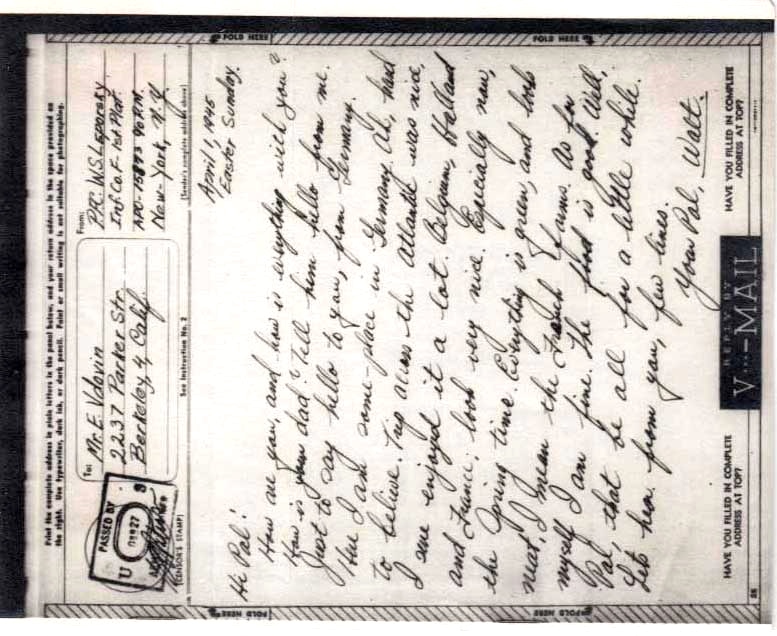 Print the complete address in plain letters in the panel below, and your return address in the space provided on
the right. Use typewriter, dark ink, or dark pencil. Faint or small writing is not suitable for photographing.
PASSED BY
U
S
(CENSOR'S STAMP)
To:
Mr. E. Vdovin
2237 Parker Str.
Berkeley, 4, Calif.
See Instruction No. 2
From:
PFC. W.S. Leporsky
Inf. Co. F- 1st Plat.
APO- 15873 % P.M.
New-York, N.Y.
(Sender's complete address above)
FOLD HERE
FOLD HERE
April 1, 1945
Easter Sunday.
Hi Pal!
How are you, and how is everything with you?
How is your dad? Tell him hello from me.
Just to say hello to you, from Germany.
Here I am some-place in Germany. Ah, hard
to believe. Trip across the Atlantic was nice,
I sure enjoyed it a lot. Belgium, Holland
and France; look very nice. Especially now,
the Spring time. Everything is green, and look
neat, I mean the French Farms. As for
myself I am fine. The food is good. Well,
Pal that be all for a little while.
Lets hear from you, few lines.
Your Pal, Walt.
HAVE YOU FILLED IN COMPLETE
ADDRESS AT TOP?
REPLY BY
V···—MAIL
HAVE YOU FILLED IN COMPLETE
ADDRESS AT TOP?
FOLD HERE
FOLD HERE